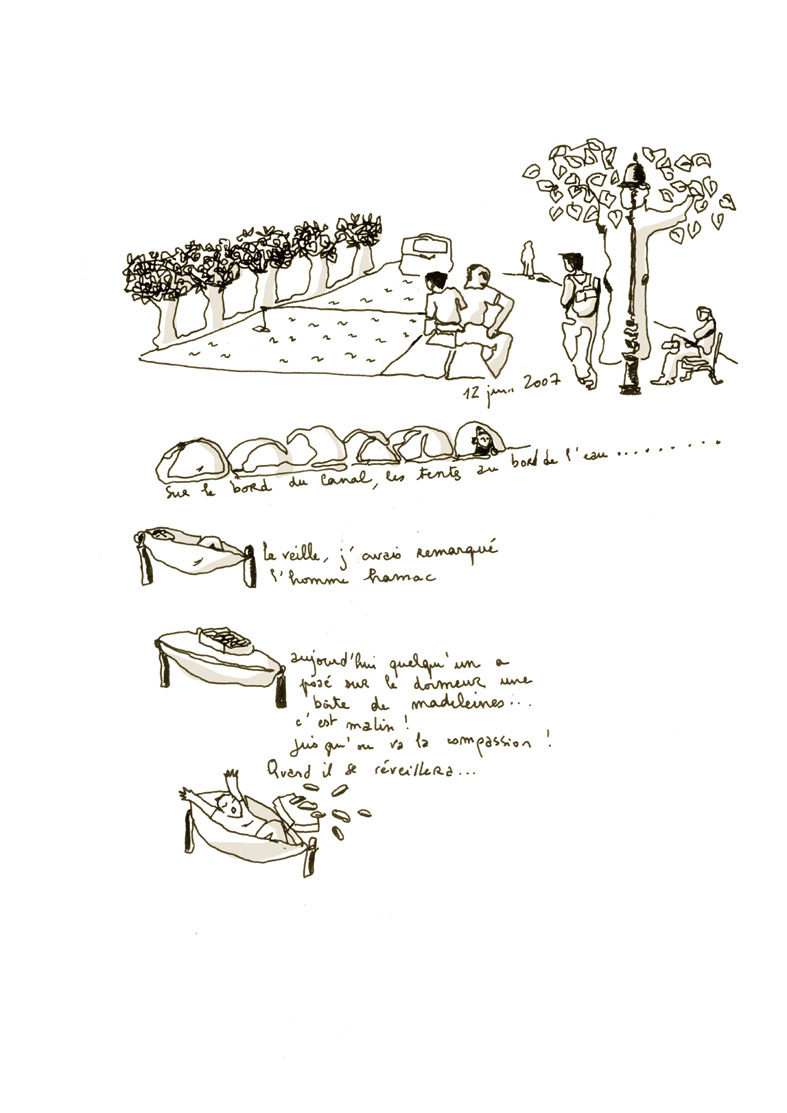 12 juin 2007
sur le bord du canal, les tents au bord de l'eau .........
la veille, j'avais remarqué
l'homme hamac
aujourd'hui quelqu'un a
posé sur le dormeur une
boîte de madeleines...
c'est malin !
jusqu'ou va la compassion !
Quand il se réveillera...